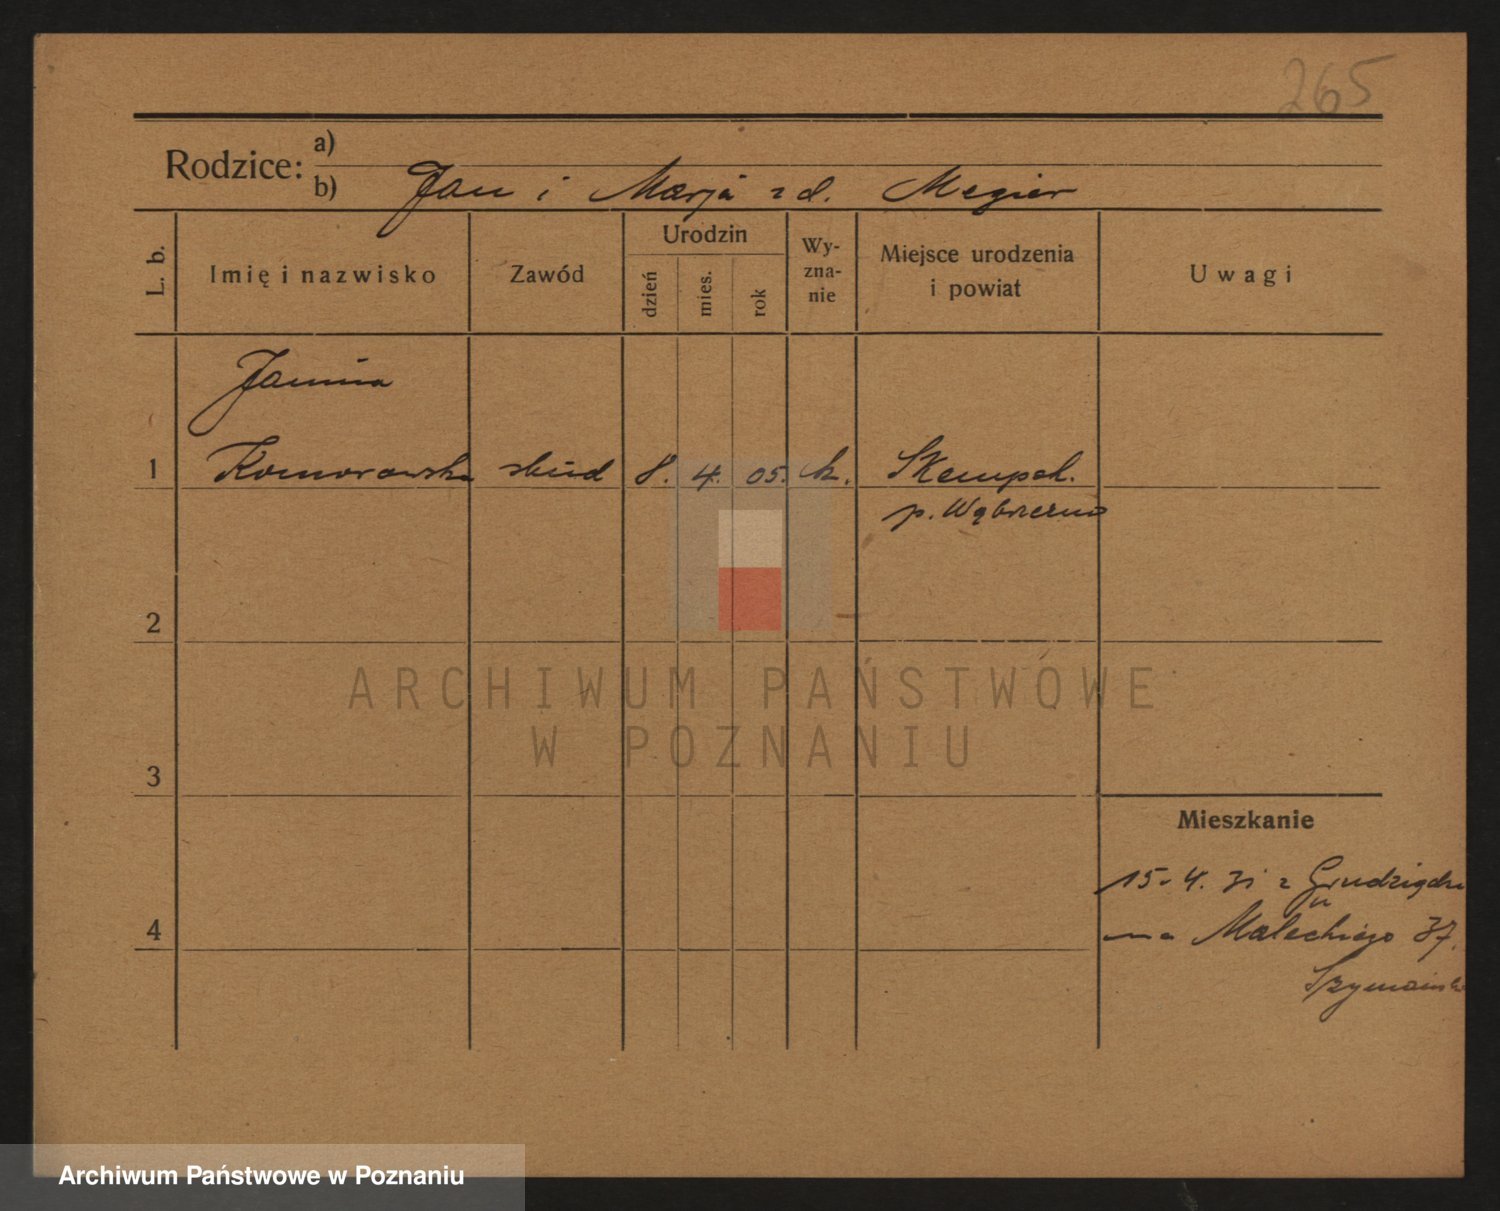 265
Rodzice: a)
b) Jan i Marja z d. Megier
L. b.
Imię i nazwisko
Zawód
Urodzin
dzień
mies.
rok
Wy-
zna-
nie
Miejsce urodzenia
i powiat
Uwagi
Janina
1 Komorowska 8. 4. 05. k. Skempsk.
p. Wąbrzeźno
2
ARCHIWUM PAŃSTWOWE
W POZNANIU
3
Mieszkanie
15. 4. 31 z Grudziądza
4 na Małeckiego 37.
u Szymańska
Archiwum Państwowe w Poznaniu